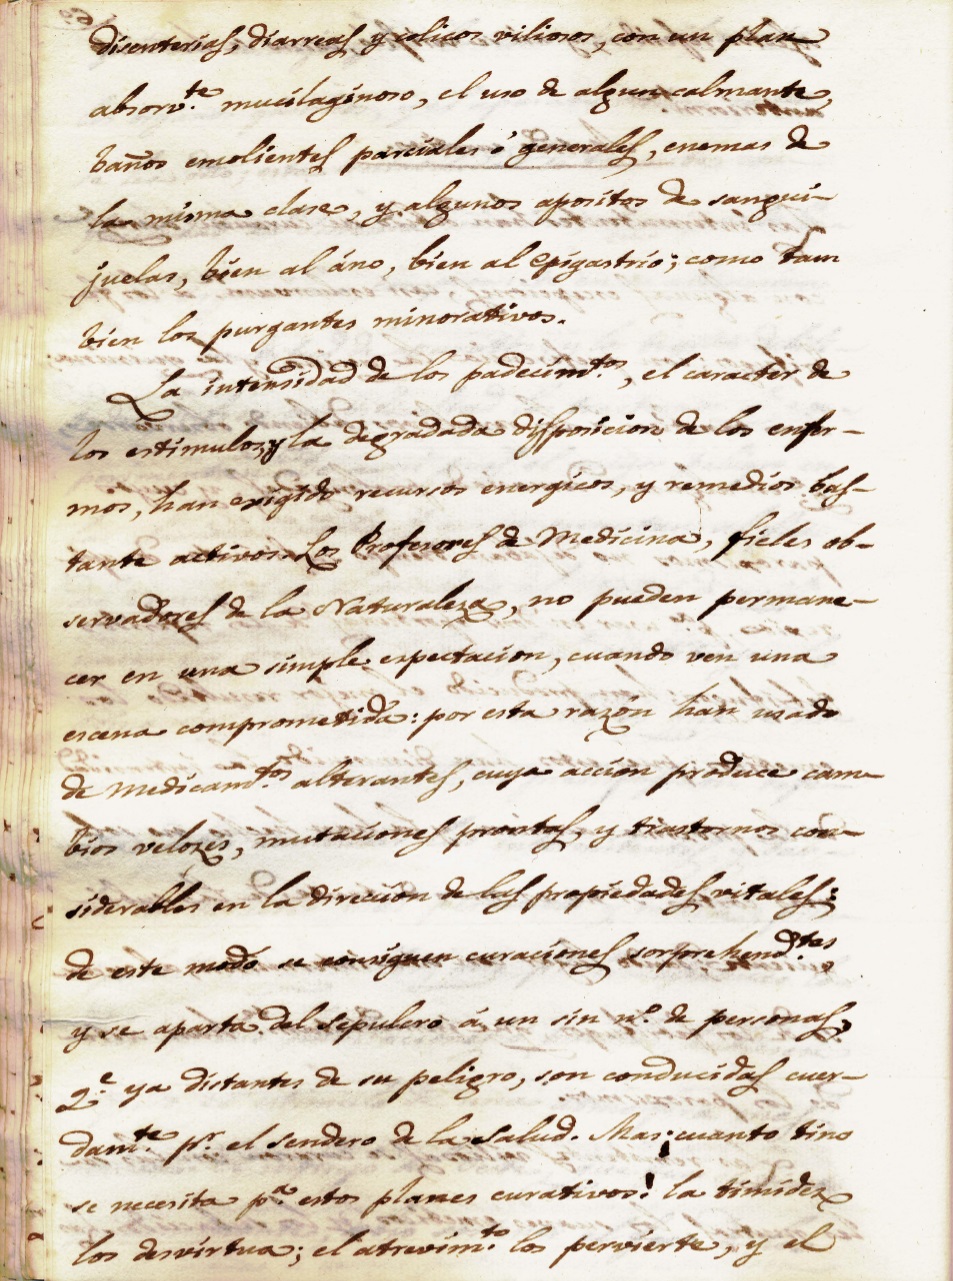 disenterias, diarreas, y colicos viliosos, con un plan
absorv.te mucilaginoso, el uso de algun calmante,
baños emolientes parciales ó generales, enemas de
la misma clase, y algunos apositos de sangui-
juelas, bien al áno, bien al epigastrio; como tam
bien los purgantes minorativos.
La intensidad de los padecim.tos, el caracter de
los estimulos, y la degradada disposicion de los enfer-
mos, han exigido recursos energicos, y remedios bas-
tante activos. Los Profesores de Medicina, fieles ob-
servadores de la Naturaleza, no pueden permane-
cer en una simple expectacion, cuando ven una
escena comprometida: por esta razon han usado
de Medicam.tos alterantes, cuya accion produce cam-
bios velozes, mutaciones prontas, y trastornos con-
siderables en la direccion de las propiedades vitales:
de este modo se consiguen curaciones sorprehend.tes,
y se aparta del sepulcro á un sin n.o de personas,
q.e ya distantes de su peligro, son conducidas cuer-
dam.te p.r el sendero de la salud. Mas ¡cuanto tino
se necesita p.a estos planes curativos! la timidez
los desvirtua; el atrevim.to los pervierte, y el